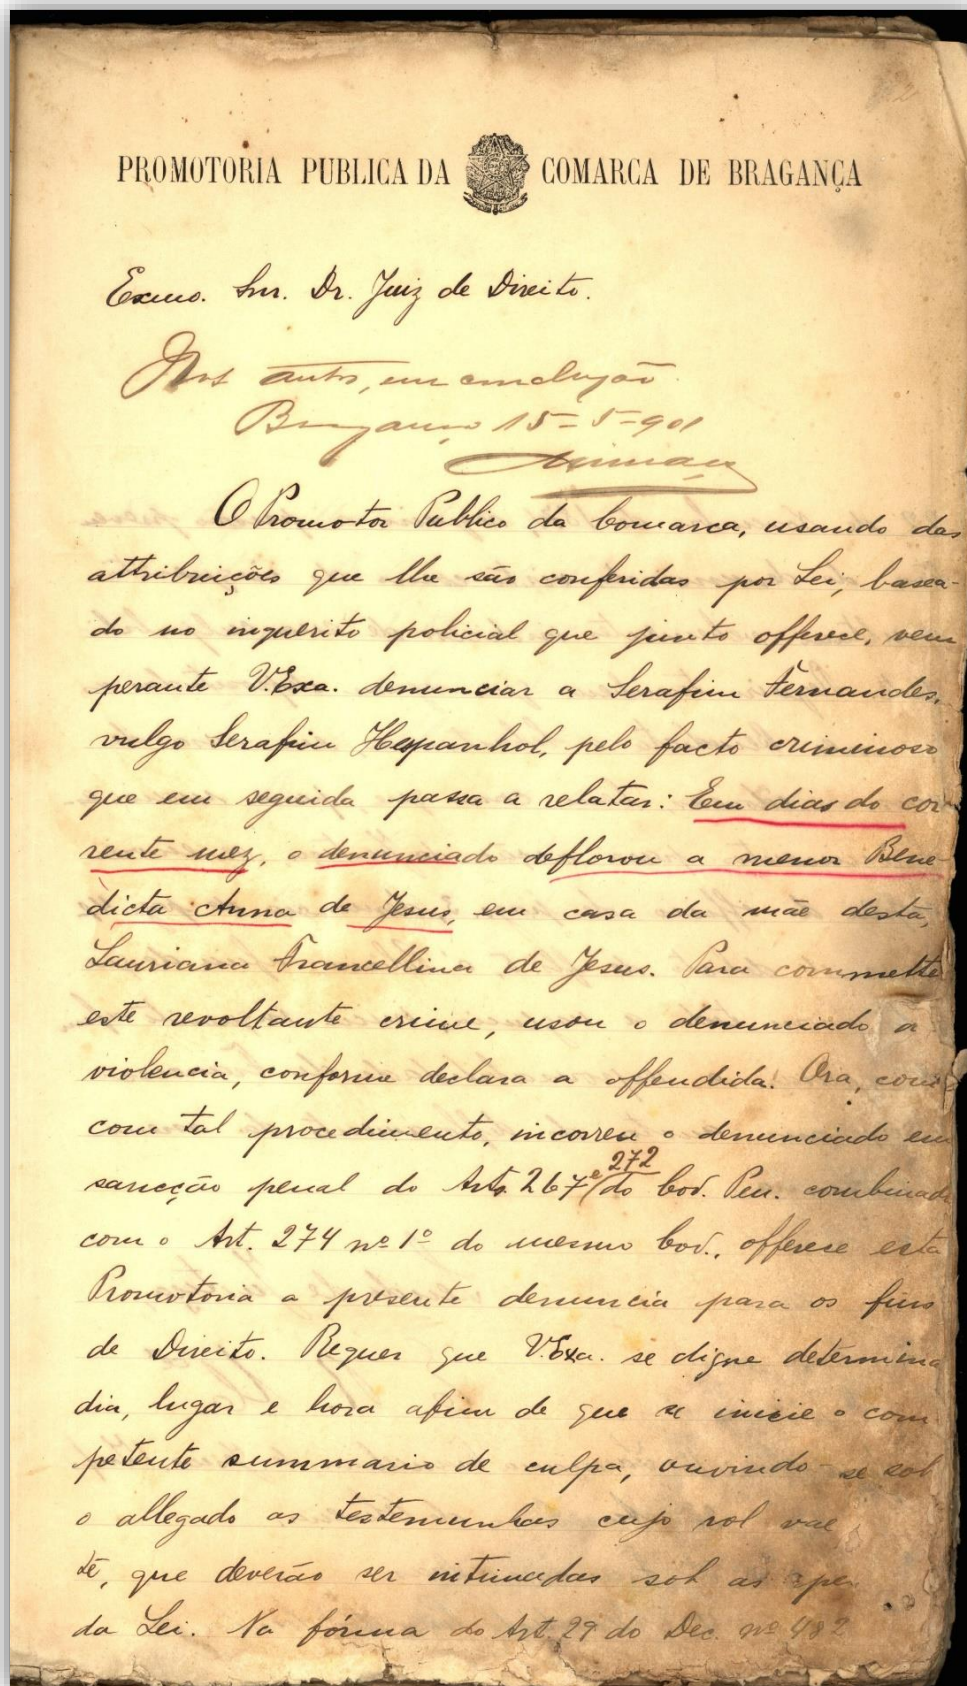 2
PROMOTORIA PUBLICA DA COMARCA DE BRAGANÇA
Exmo. Snr. Dr. Juiz de Direito.
autos, em conclusão.
Bragança 15-5-901
O Promotor Publico da Comarca, usando das
attribuições que lhe são conferidas por Lei, basea-
do no inquerito policial que junto offerece, vem
perante V.Exa. denunciar a Serafim Fernandes,
vulgo Serafim Hespanhol, pelo facto criminoso
que em seguida passa a relatar: Em dias do cor-
rente mez, o denunciado deflorou a menor Bene-
dicta Anna de Jesus, em casa da mãe desta,
Lauriana Francellina de Jesus. Para commette
este revoltante crime, usou o denunciado a
violencia, conforme declara a offendida. Ora, com
com tal procedimento, incorreu o denunciado em
sancção penal do Arts. 267 e 272 do Cod. Pen. combinado
com o Art. 274 nº 1º do mesmo Cod., offerece esta
Promotoria a presente denuncia para os fins
de Direito. Requer que V.Exa. se digne determina
dia, lugar e hora afim de que se inicie o com
petente summario de culpa, ouvindo-se sob
o allegado as testemunhas cujo rol vae
te, que deverão ser intimadas sob as pe
da Lei. Na fórma do Art. 29 do Dec. nº 482